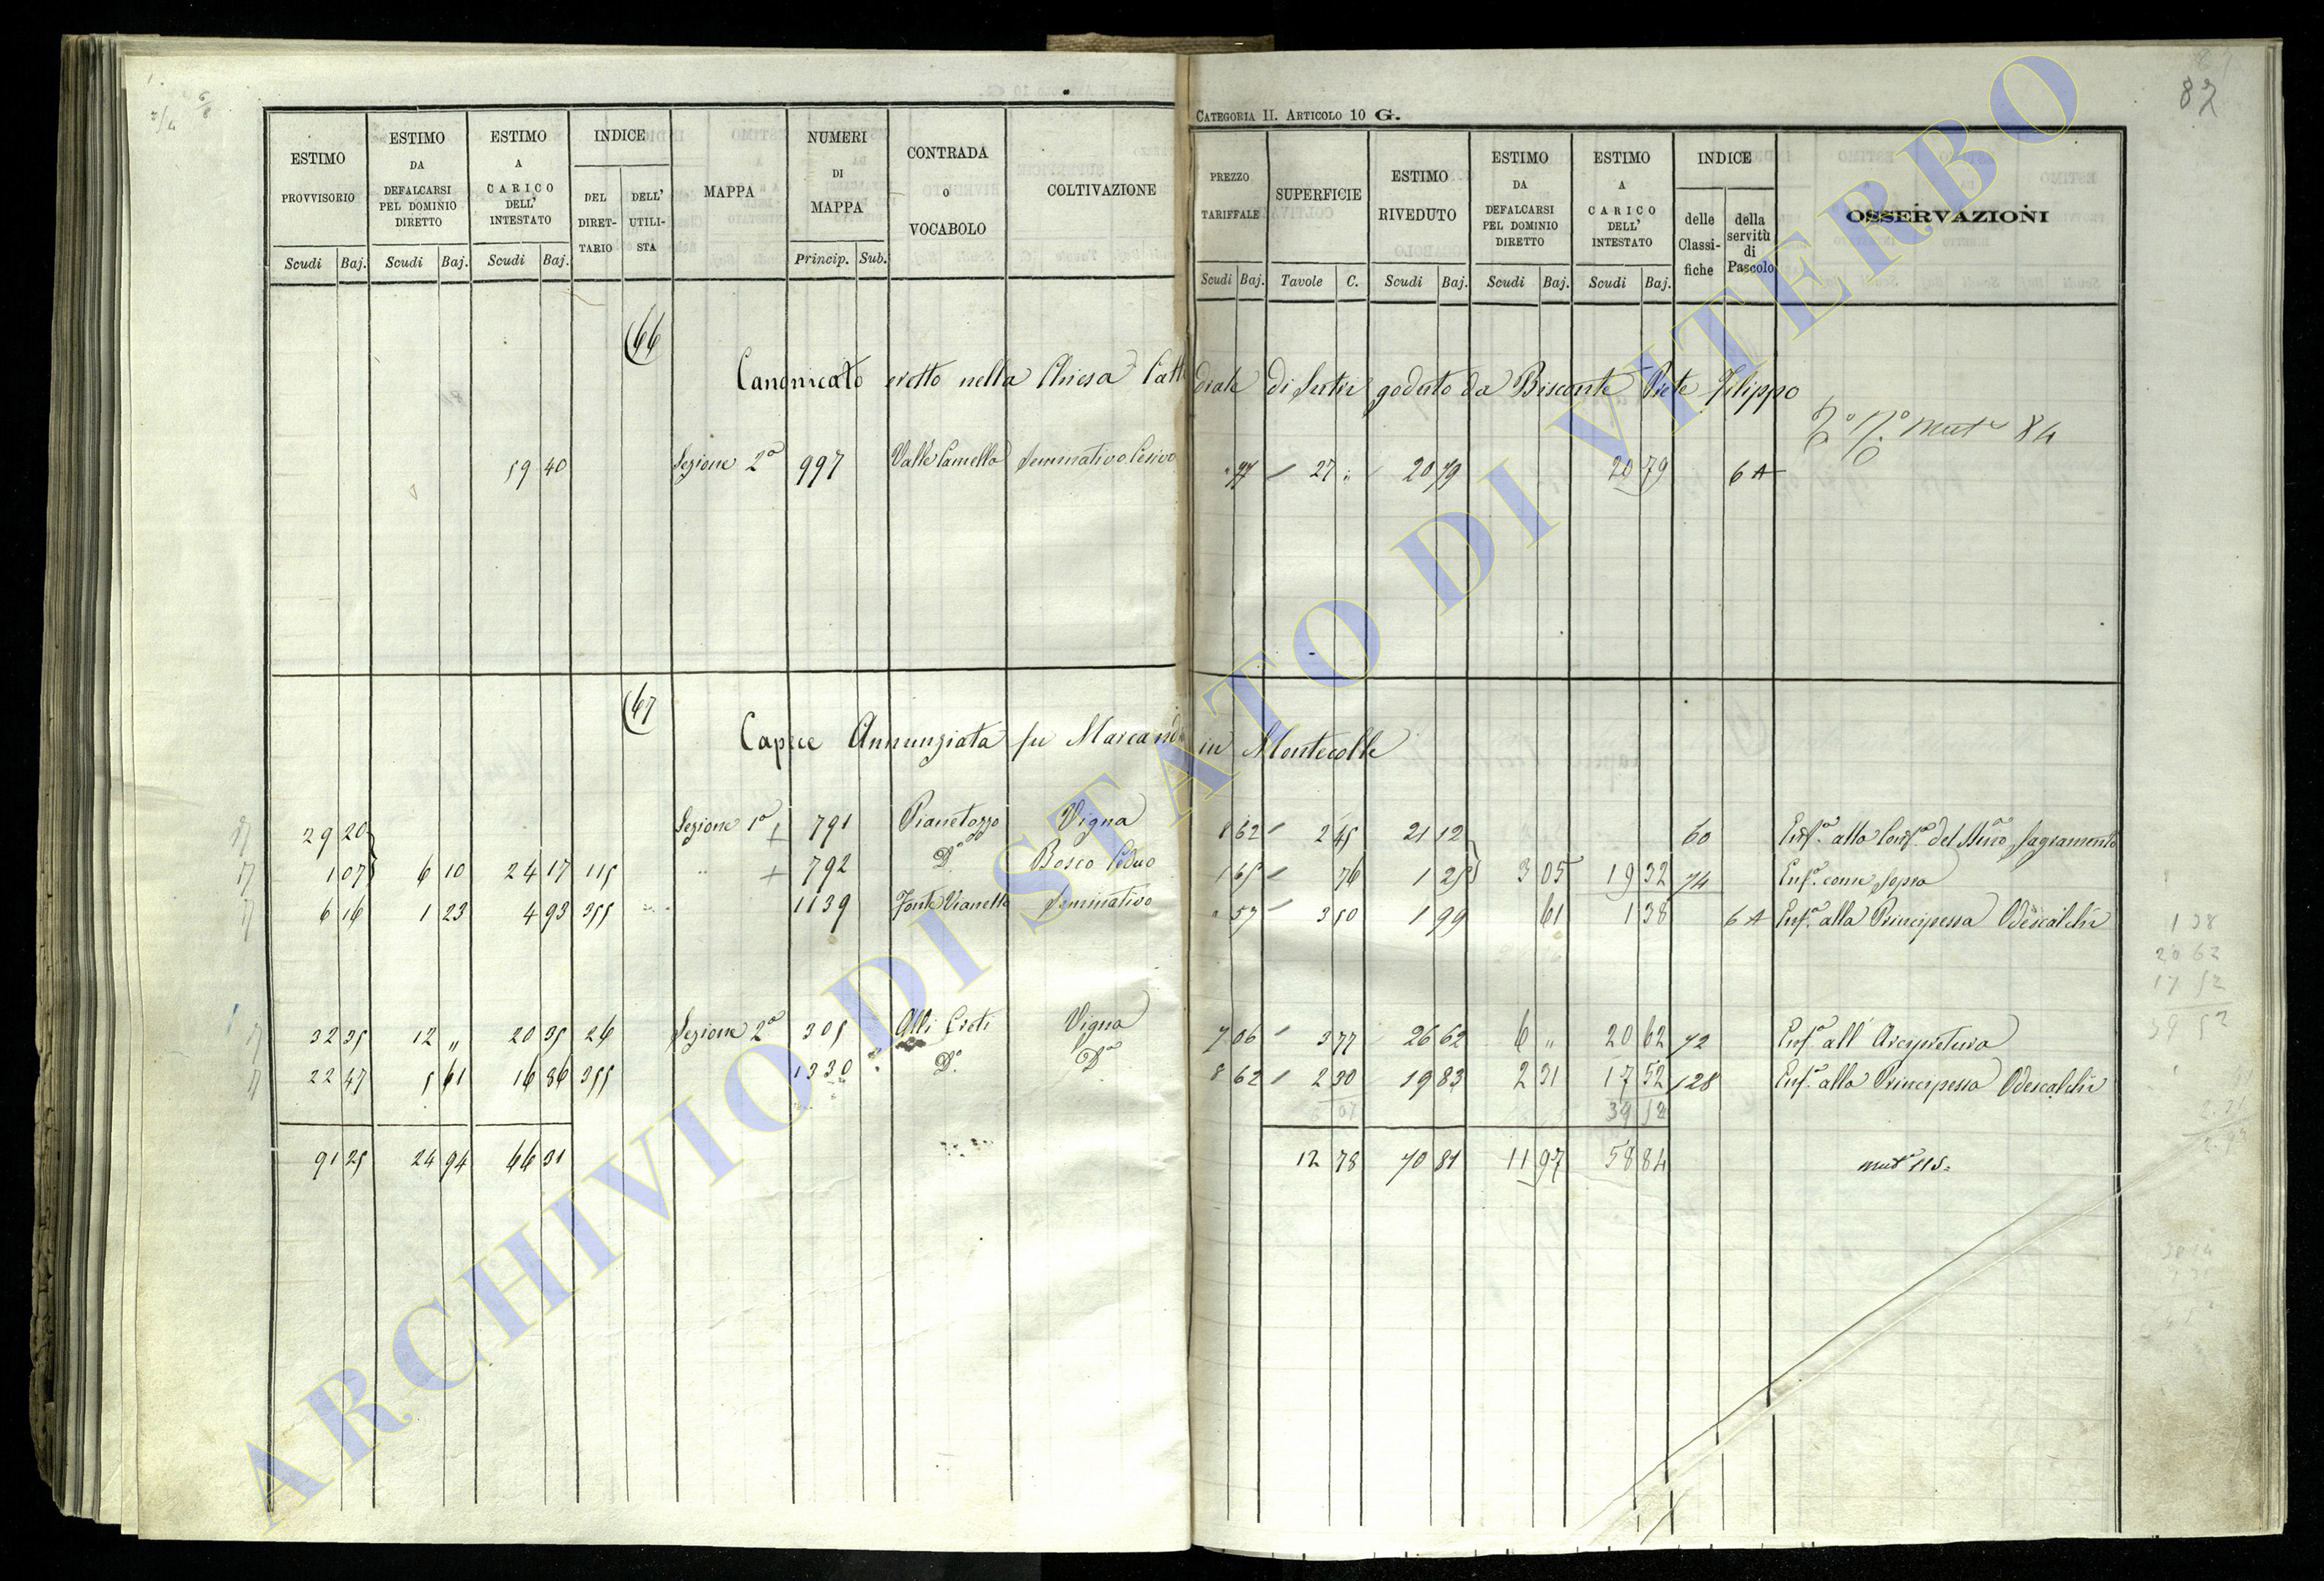 82
CATEGORIA II. ARTICOLO 10 G.
ESTIMO PROVVISORIO | ESTIMO DA DEFALCARSI PEL DOMINIO DIRETTO | ESTIMO A CARICO DELL' INTESTATO | INDICE | MAPPA | NUMERI DI MAPPA | CONTRADA o VOCABOLO | COLTIVAZIONE | PREZZO TARIFFALE | SUPERFICIE | ESTIMO RIVEDUTO | ESTIMO DA DEFALCARSI PEL DOMINIO DIRETTO | ESTIMO A CARICO DELL' INTESTATO | INDICE | OSSERVAZIONI
DEL DIRET-TARIO | DELL' UTILI-STA | delle Classi-fiche | della servitù di Pascolo
Scudi Baj. | Scudi Baj. | Scudi Baj. | Princip. Sub. | Scudi Baj. | Tavole C. | Scudi Baj. | Scudi Baj. | Scudi Baj.
66
Canonicato eretto nella Chiesa Cattedrale di Sutri goduto da Biscante Prete Filippo
84
59 40 Sezione 2a 997 Valle Camella Seminativo Cesivo " 77 27 20 79 20 79 6 A
67
Capece Annunziata fu Marcan in Montecolle
29 20 Sezione 1a 791 Pianetozzo Vigna 8 62 2 45 21 12 60 Enfa alla Confa del Smo Sagramento
1 07 6 10 24 17 115 792 Do Bosco Ceduo 1 65 76 1 25 3 05 19 32 74 Enfa come sopra
6 16 1 23 4 93 355 1139 Fonte Vianella Seminativo " 57 3 50 1 99 61 1 38 6 A Enfa alla Principessa Odescalchi
32 35 12 " 20 35 26 Sezione 2a 305 Alli Creti Vigna 7 06 3 77 26 62 6 " 20 62 72 Enfa all' Arcipretura
22 47 5 61 16 86 355 1330 Do Do 8 62 2 30 19 83 2 31 17 52 128 Enfa alla Principessa Odescalchi
39 52
91 25 24 94 66 31 12 78 70 81 11 97 58 84 muta 115
1 38
20 62
17 52
39 52
ARCHIVIO DI STATO DI VITERBO